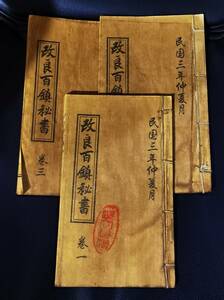 改良百鎮秘書
民国三年仲夏月
改良百鎮秘書
卷三
民国三年仲夏月
改良百鎮秘書
卷一